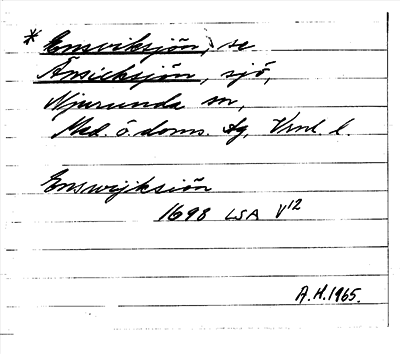 * Ensviksjön, se
Änsicksjön, sjö,
Njurunda sn,
Med. ö. doms. tg, Vrnl l.
Enswijksiön
1698 LSA V12
A.H. 1965.